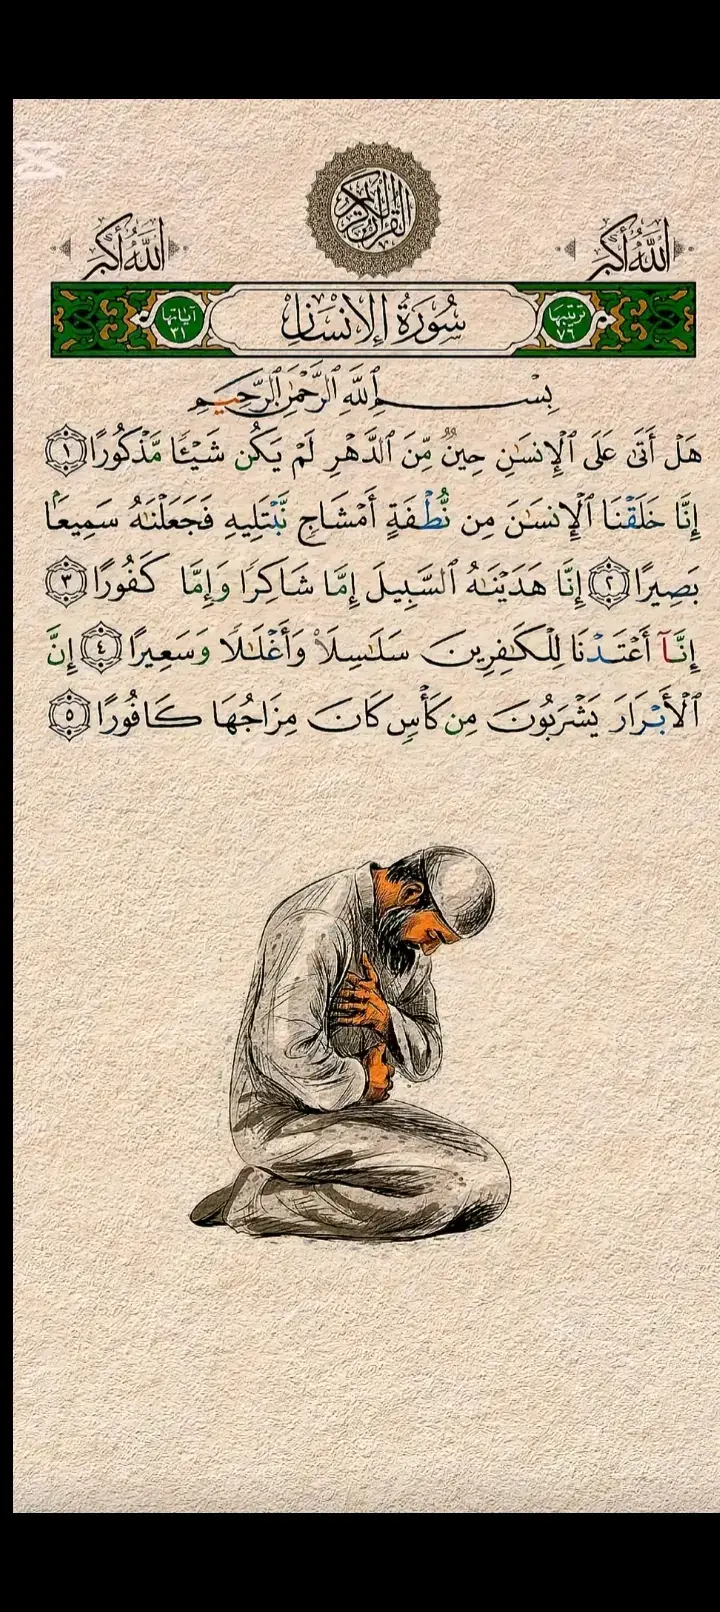 القرآن الكريم
الله أكبر
الله أكبر
ترتيبها ٧٦
سُورَةُ الإِنسَان
آياتها ٣١
بِسْمِ ٱللَّهِ ٱلرَّحْمَٰنِ ٱلرَّحِيمِ
هَلْ أَتَىٰ عَلَى ٱلْإِنسَٰنِ حِينٌ مِّنَ ٱلدَّهْرِ لَمْ يَكُن شَيْـًٔا مَّذْكُورًا ١
إِنَّا خَلَقْنَا ٱلْإِنسَٰنَ مِن نُّطْفَةٍ أَمْشَاجٍ نَّبْتَلِيهِ فَجَعَلْنَٰهُ سَمِيعًۢا
بَصِيرًا ٢ إِنَّا هَدَيْنَٰهُ ٱلسَّبِيلَ إِمَّا شَاكِرًا وَإِمَّا كَفُورًا ٣
إِنَّآ أَعْتَدْنَا لِلْكَٰفِرِينَ سَلَٰسِلَا۟ وَأَغْلَٰلًا وَسَعِيرًا ٤ إِنَّ
ٱلْأَبْرَارَ يَشْرَبُونَ مِن كَأْسٍ كَانَ مِزَاجُهَا كَافُورًا ٥